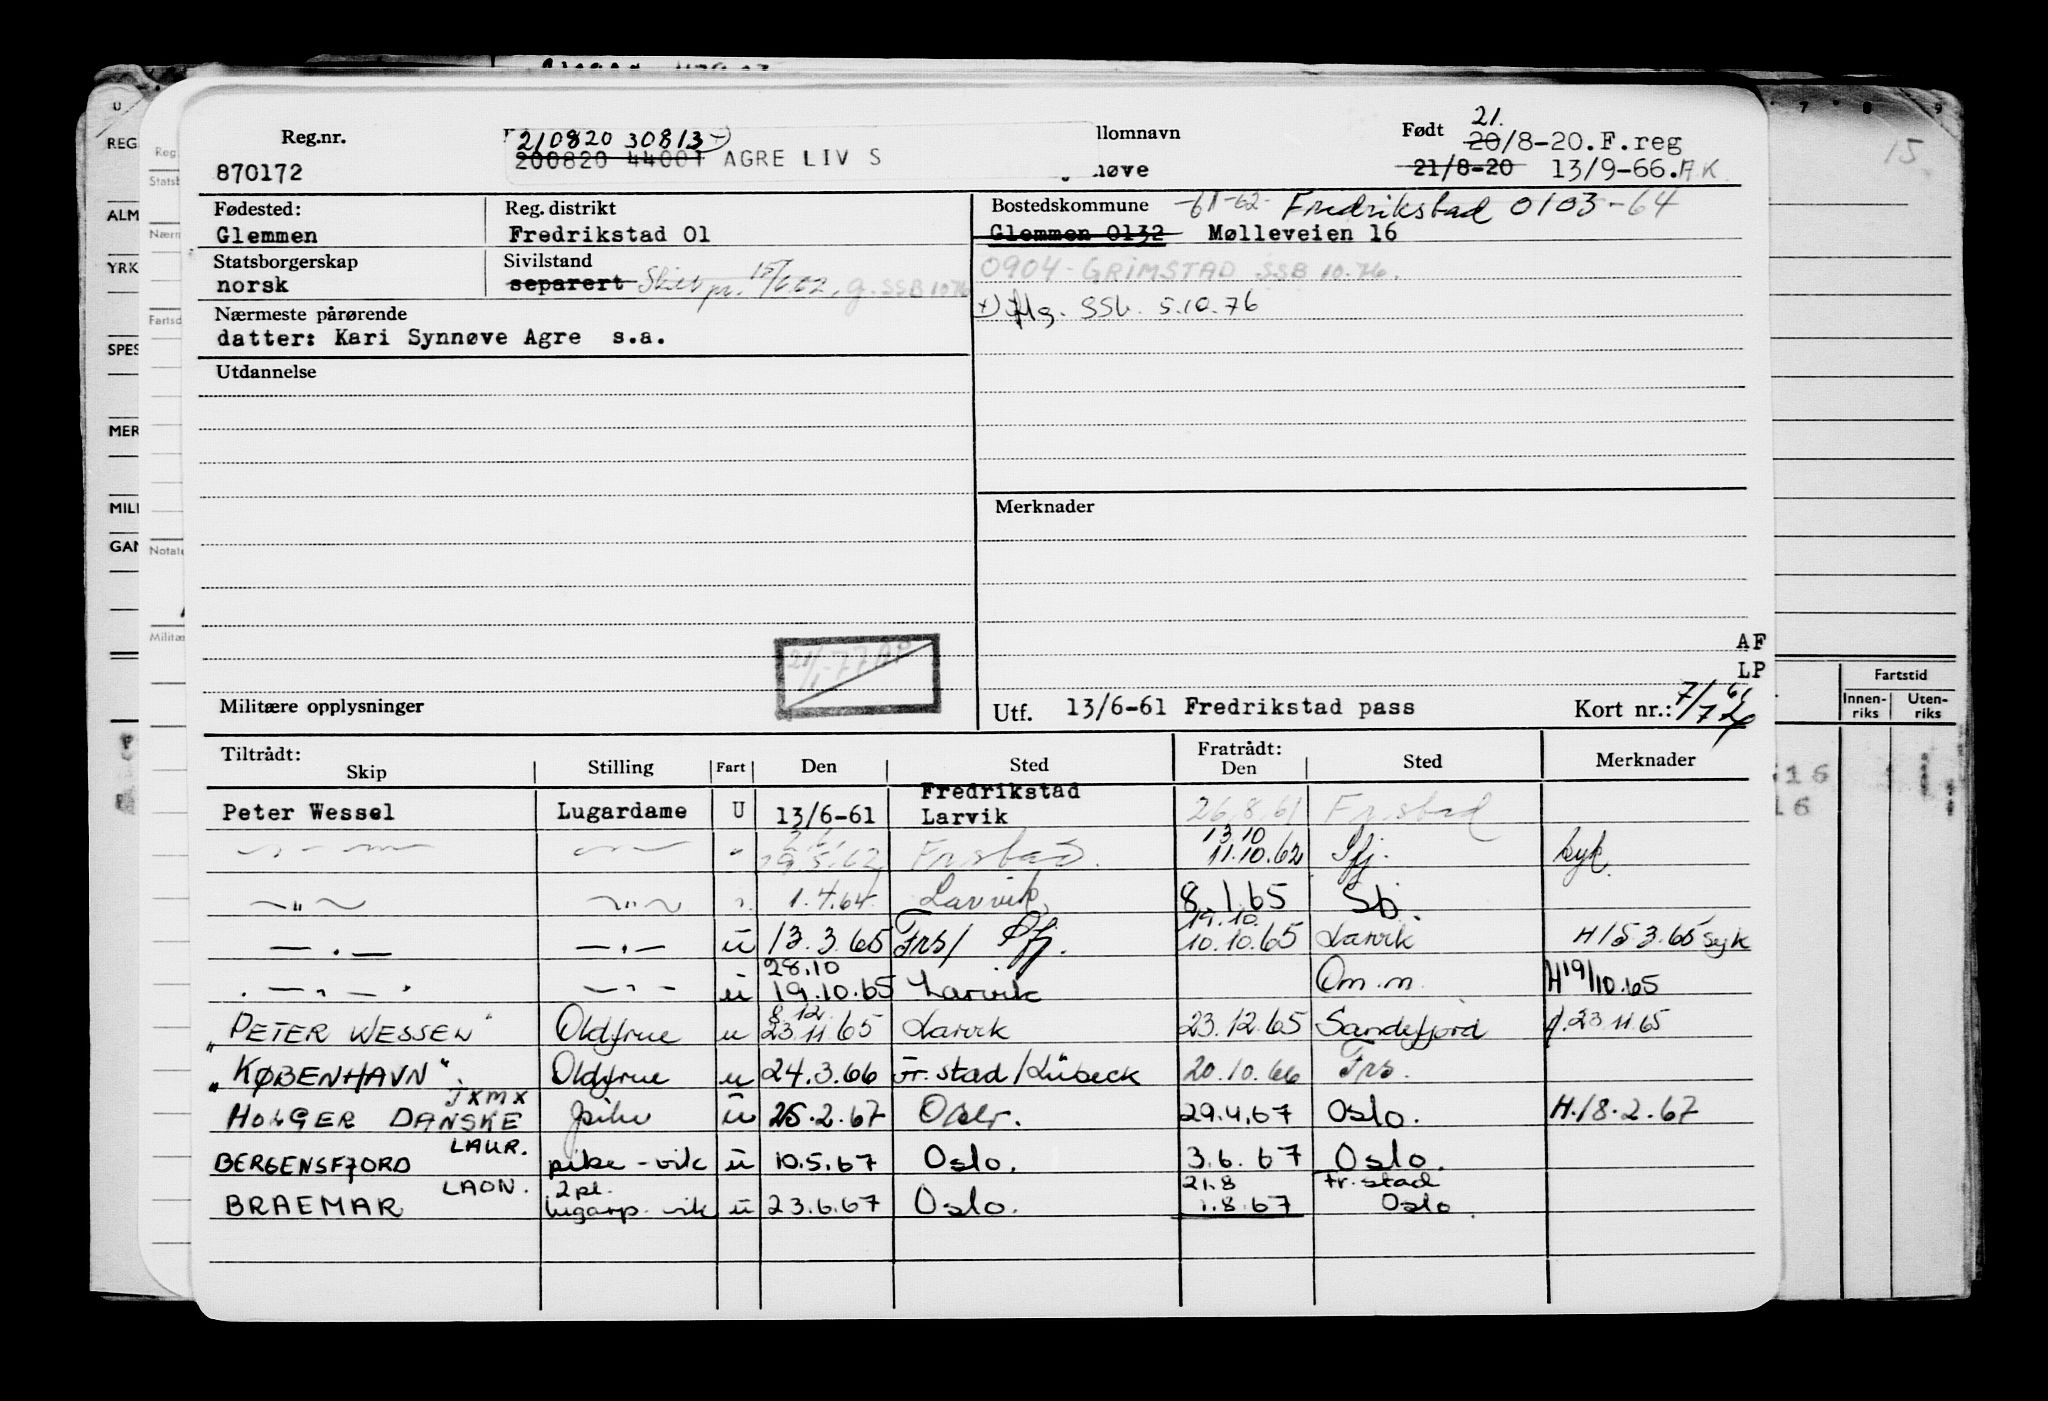 Reg.nr.
870172
210820 30813
200820 44001 AGRE LIV S
llomnavn
nøve
Født
21.
20/8-20.F.reg
21/8-20 13/9-66.A.K.
15
Fødested:
Glemmen
Reg. distrikt
Fredrikstad 01
Bostedskommune -61-62- Fredrikstad 0103-64
Glemmen 0132 Mølleveien 16
Statsborgerskap
norsk
Sivilstand
separert
0904 - GRIMSTAD SSB 10.76.
Nærmeste pårørende
datter: Kari Synnøve Agre s.a.
SSb. 5.10.76
Utdannelse
Merknader
AF
LP
Militære opplysninger
Utf. 13/6-61 Fredrikstad pass
Kort nr.:
Tiltrådt:
Skip
Stilling
Fart
Den
Sted
Fratrådt:
Den
Sted
Merknader
Peter Wessel Lugardame U 13/6-61 Fredrikstad Larvik 26.8.61 Fr.stad
Frstad. 13.10 11.10.62 Sfj. syk.
—"— —"— 1.4.64 Larvik. 8.1.65 Sb.
—.— —.— u 13.3.65 Frs/ Sfj. 19.10. 10.10.65 Larvik H/5 3.65 syk
28.10
u 19.10.65 Larvik Om.m. H19/10.65
8.12
"PETER WESSEN" Oldfrue u 23.11.65 Larvik 23.12.65 Sandefjord H.23.11.65
"KØBENHAVN" Oldfrue u 24.3.66 Fr.stad/Lübeck 20.10.66 Frs.
JXMX
HOLGER DANSKE pike u 25.2.67 Oslo. 29.4.67 Oslo. H./8.2.67
LAUR.
BERGENSFJORD pike - vik u 10.5.67 Oslo. 3.6.67 Oslo.
LAON. 2pl. 21.8 Fr.stad
BRAEMAR lugarp. vik u 23.6.67 Oslo. 1.8.67 Oslo
Fartstid
Innen-riks
Uten-riks